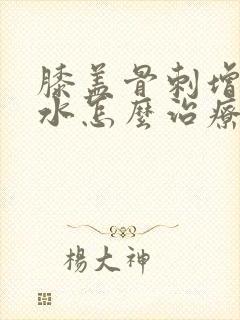 膝盖骨刺增
水怎麼治療
楊大神